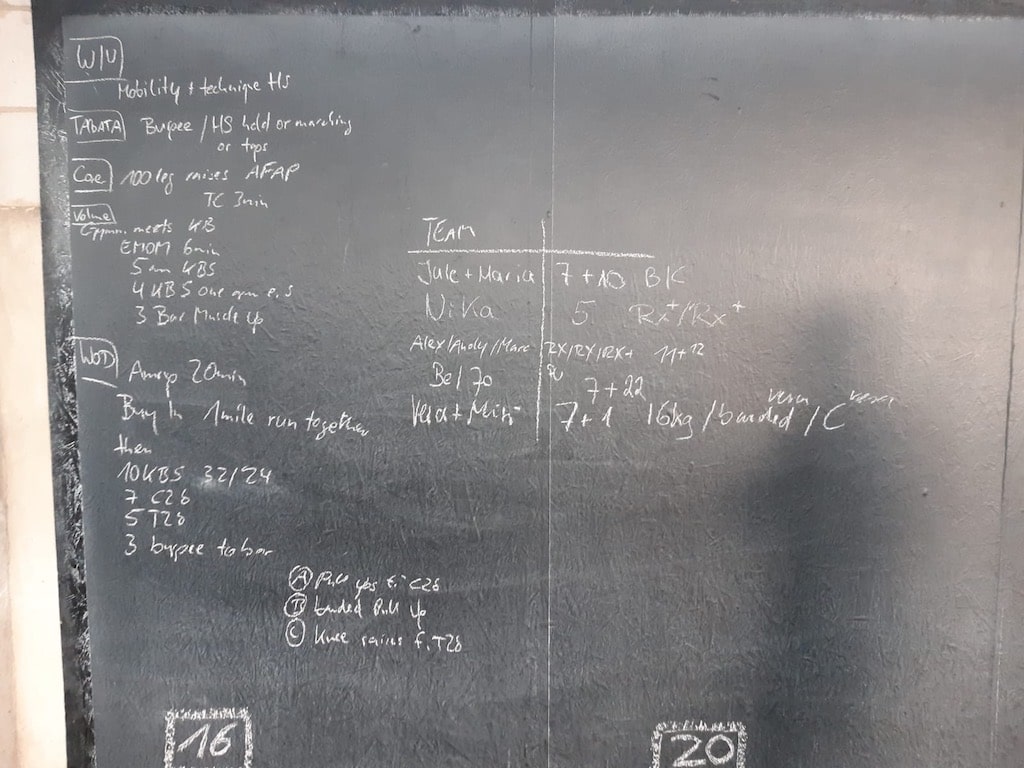 W/U
Mobility + technique HS
TABATA Burpee / HS hold or marching
or taps
Core 100 leg raises AFAP
TC 3min
Volume
meets KB
EMOM 6min
5 am KBS
4 KBS one arm e.s
3 Bar Muscle Up
WOD Amrap 20min
Buy In 1mile run together
then
10 KBS 32/24
7 C2b
5 T2b
3 burpee to bar
Ⓐ Pull ups f. C2b
Ⓑ banded Pull up
Ⓒ Knee raises f. T2b
TEAM
Jule + Maria 7 + 10 B/C
Nika 5 Rx+/Rx+
Alex/Andy/Marc RX/RX/RX+ 11+12
Be/Jo 7 + 22
Vera + 7 + 1 16kg / banded / C
16
20